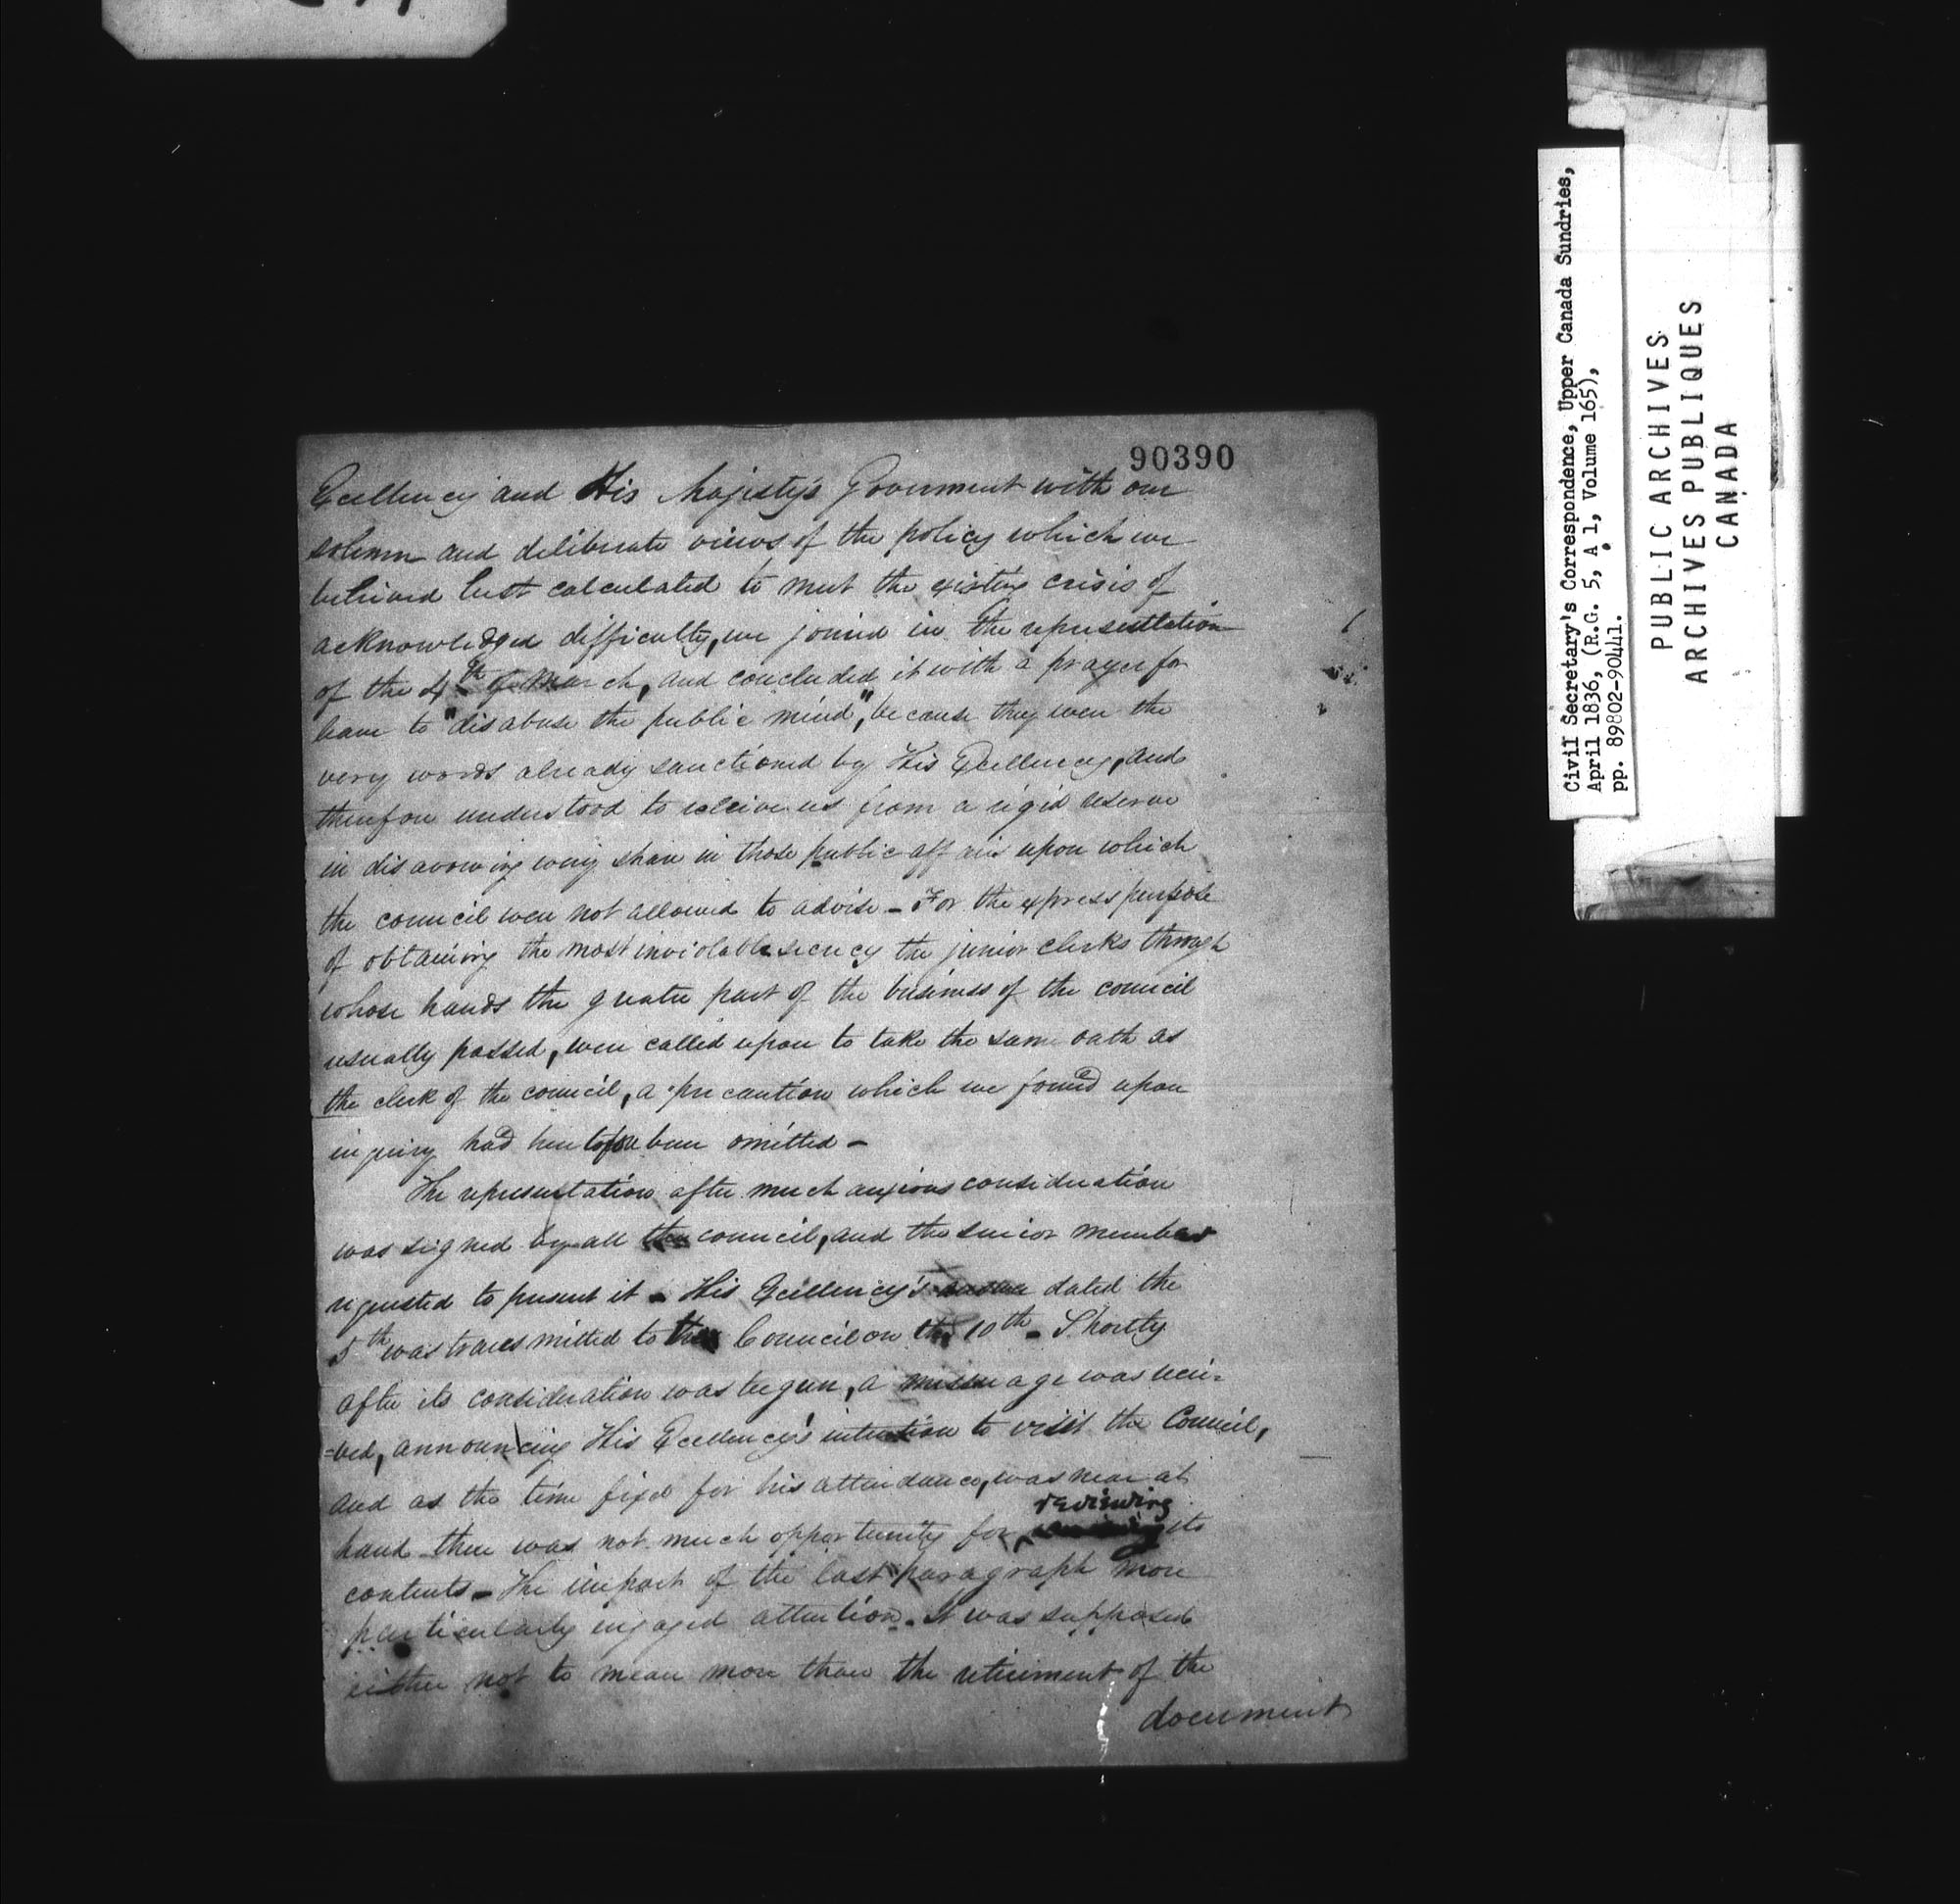 90390
Excellency and His Majesty's Government with our
solemn and deliberate views of the policy which we
believed best calculated to meet the existing crisis of
acknowledged difficulty, we joined in the representation
of the 4th of March, and concluded it with a prayer for
leave to "disabuse the public mind", because they were the
very words already sanctioned by His Excellency, and
therefore understood to relieve us from a rigid reserve
in disavowing any share in those public affairs upon which
the council were not allowed to advise - For the express purpose
of obtaining the most inviolable secrecy the junior clerks through
whose hands the greater part of the business of the council
usually passed, were called upon to take the same oath as
the clerk of the council, a precaution which we found upon
inquiry had heretofore been omitted -
The representation after much anxious consideration
was signed by all the council, and the senior member
requested to present it - His Excellency's answer dated the
5th was transmitted to the Council on the 10th - Shortly
after its consideration was begun, a message was recei-
=ved, announcing His Excellency's intention to visit the Council,
and as the time fixed for his attendance, was near at
hand there was not much opportunity for reviewing its
contents - The import of the last paragraph more
particularly engaged attention. It was supposed
either not to mean more than the retirement of the
document
Civil Secretary's Correspondence, Upper Canada Sundries,
April 1836, (R.G. 5, A 1, Volume 165),
pp. 89802-90441.
PUBLIC ARCHIVES
ARCHIVES PUBLIQUES
CANADA